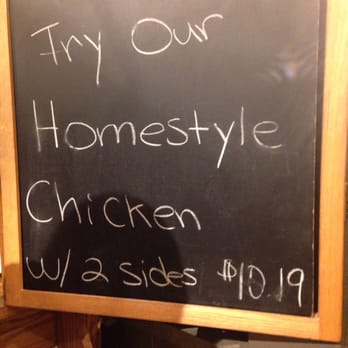 Try Our
Homestyle
Chicken
w/ 2 sides $10.19